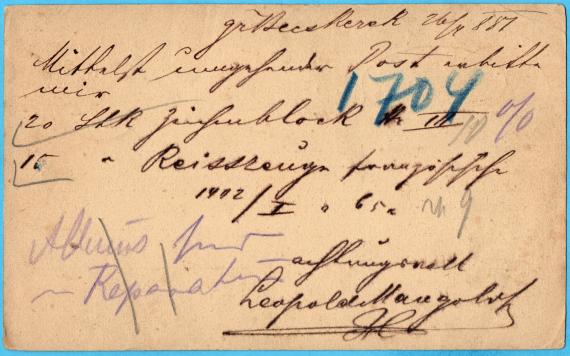 gr Becskerek 26/4 887
Mittelst umgehender Post erbitte
mir
1704
20 Stk Zeichenblock Nr III
15 " Reisszeuge französische
1402/I a 65
Albums und
Reparatur
achtungsvoll
Leopold Mangold